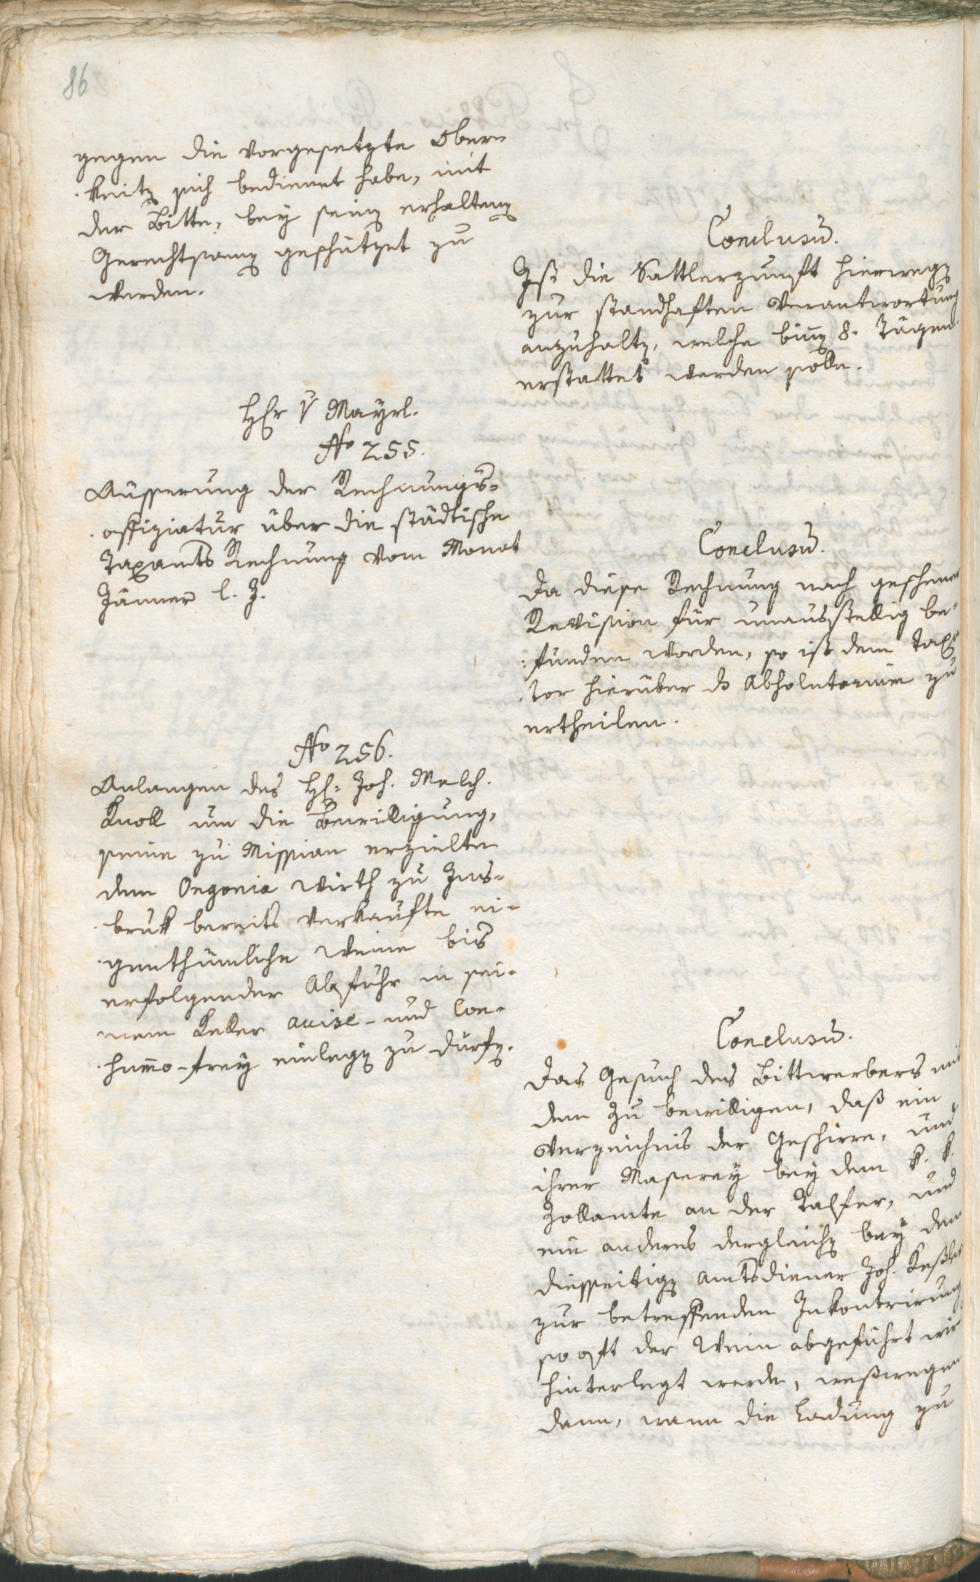 86
gegen die vorgesetzte Obern
keitz sich bedienet habe, mit
der Bitte, bey seinen erhaltenen
Gerechtsamen geschützet zu
werden.
Conclusum.
Ist die Sattlerzunft hierwegen
zur standhaften Verantwortung
anzuhalten, welche binnen 8. Tägen
erstattet werden solle.
Hr v Mayrl.
No 255.
Aüsserung der Rechnungs-
offiziatur über die städtische
Taxamts Rechnung vom Monat
Jänner l. J.
Conclusum.
Da diese Rechnung nach geschener
Revision für unausstellig be-
funden worden, so ist dem Taxa
tor hierüber ds Absolutorium zu
ertheilen.
No 256.
Anlangen des Hr: Joh. Melch.
Knoll um die Bewilligung,
seine zu Missian erzielte
dem Ongania Wirth zu Ins-
bruk bereits verkaufte ei-
genthümliche Weine bis
erfolgender Abfuhr in sei-
nem Keller avise- und Con-
sumo-frey einlegen zu dürfen.
Conclusum.
Das Gesuch des Bittwerbers mit
dem zu bewilligen, daß ein
Verzeichnis der Geschirre, und
ihrer Maserey bey dem k. k.
Zollamte an der Talfer, und
ein anderes dergleichen bey dem
diesseitigen Amtsdiener Joh. Keßler
zur betreffenden Inkontrirung
so oft der Wein abgeführt wird
hinterlegt werde, weßwegen
dann, wann die Ladung zu